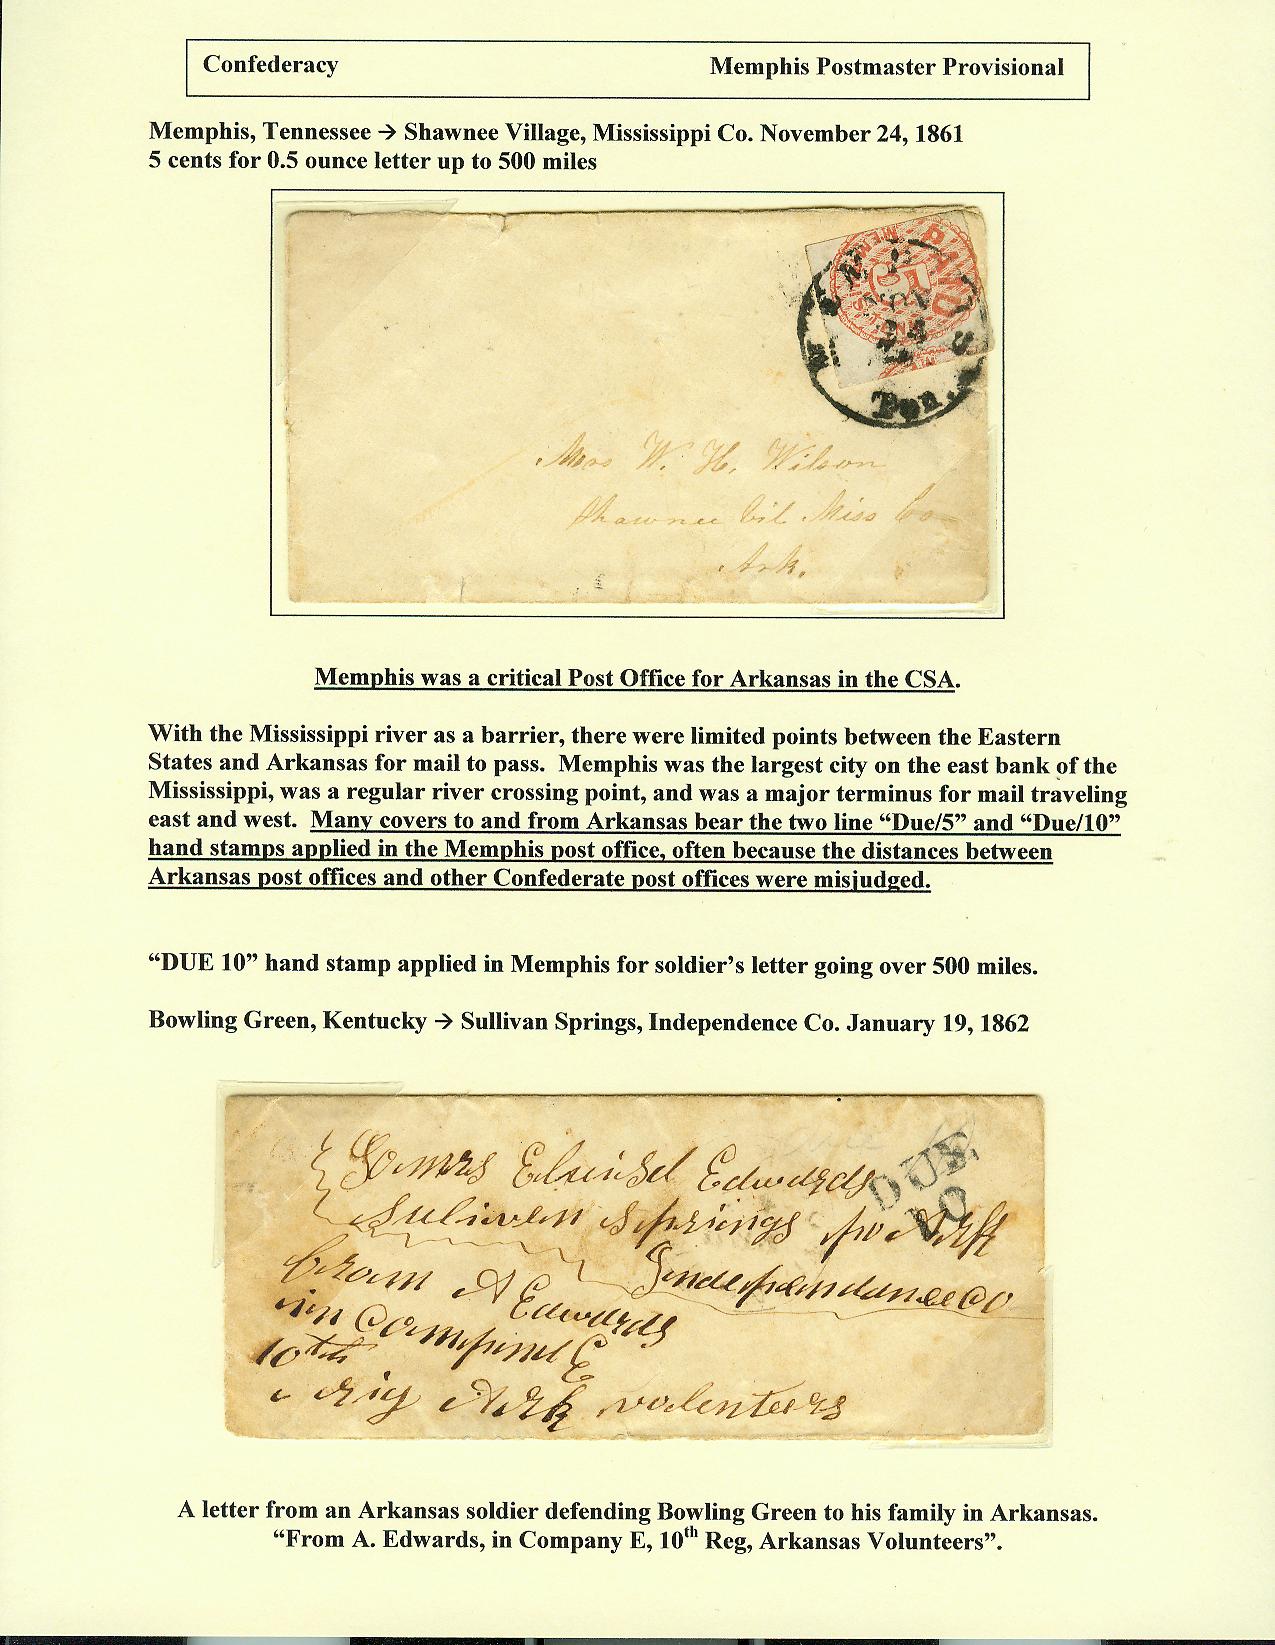 Confederacy Memphis Postmaster Provisional
Memphis, Tennessee → Shawnee Village, Mississippi Co. November 24, 1861
5 cents for 0.5 ounce letter up to 500 miles
PAID
MEMPHIS TENN
5
MEMPHIS
NOV
24
Ten.
Mrs W. H. Wilson
Shawnee Vil Miss Co
Ark.
Memphis was a critical Post Office for Arkansas in the CSA.
With the Mississippi river as a barrier, there were limited points between the Eastern
States and Arkansas for mail to pass. Memphis was the largest city on the east bank of the
Mississippi, was a regular river crossing point, and was a major terminus for mail traveling
east and west. Many covers to and from Arkansas bear the two line “Due/5” and “Due/10”
hand stamps applied in the Memphis post office, often because the distances between
Arkansas post offices and other Confederate post offices were misjudged.
“DUE 10” hand stamp applied in Memphis for soldier’s letter going over 500 miles.
Bowling Green, Kentucky → Sullivan Springs, Independence Co. January 19, 1862
DUE
10
mrs Edwards
Suliven springs po Ark
Independance co
from A Edwards
in E
10th
rig Ark volenteers
A letter from an Arkansas soldier defending Bowling Green to his family in Arkansas.
“From A. Edwards, in Company E, 10th Reg, Arkansas Volunteers”.